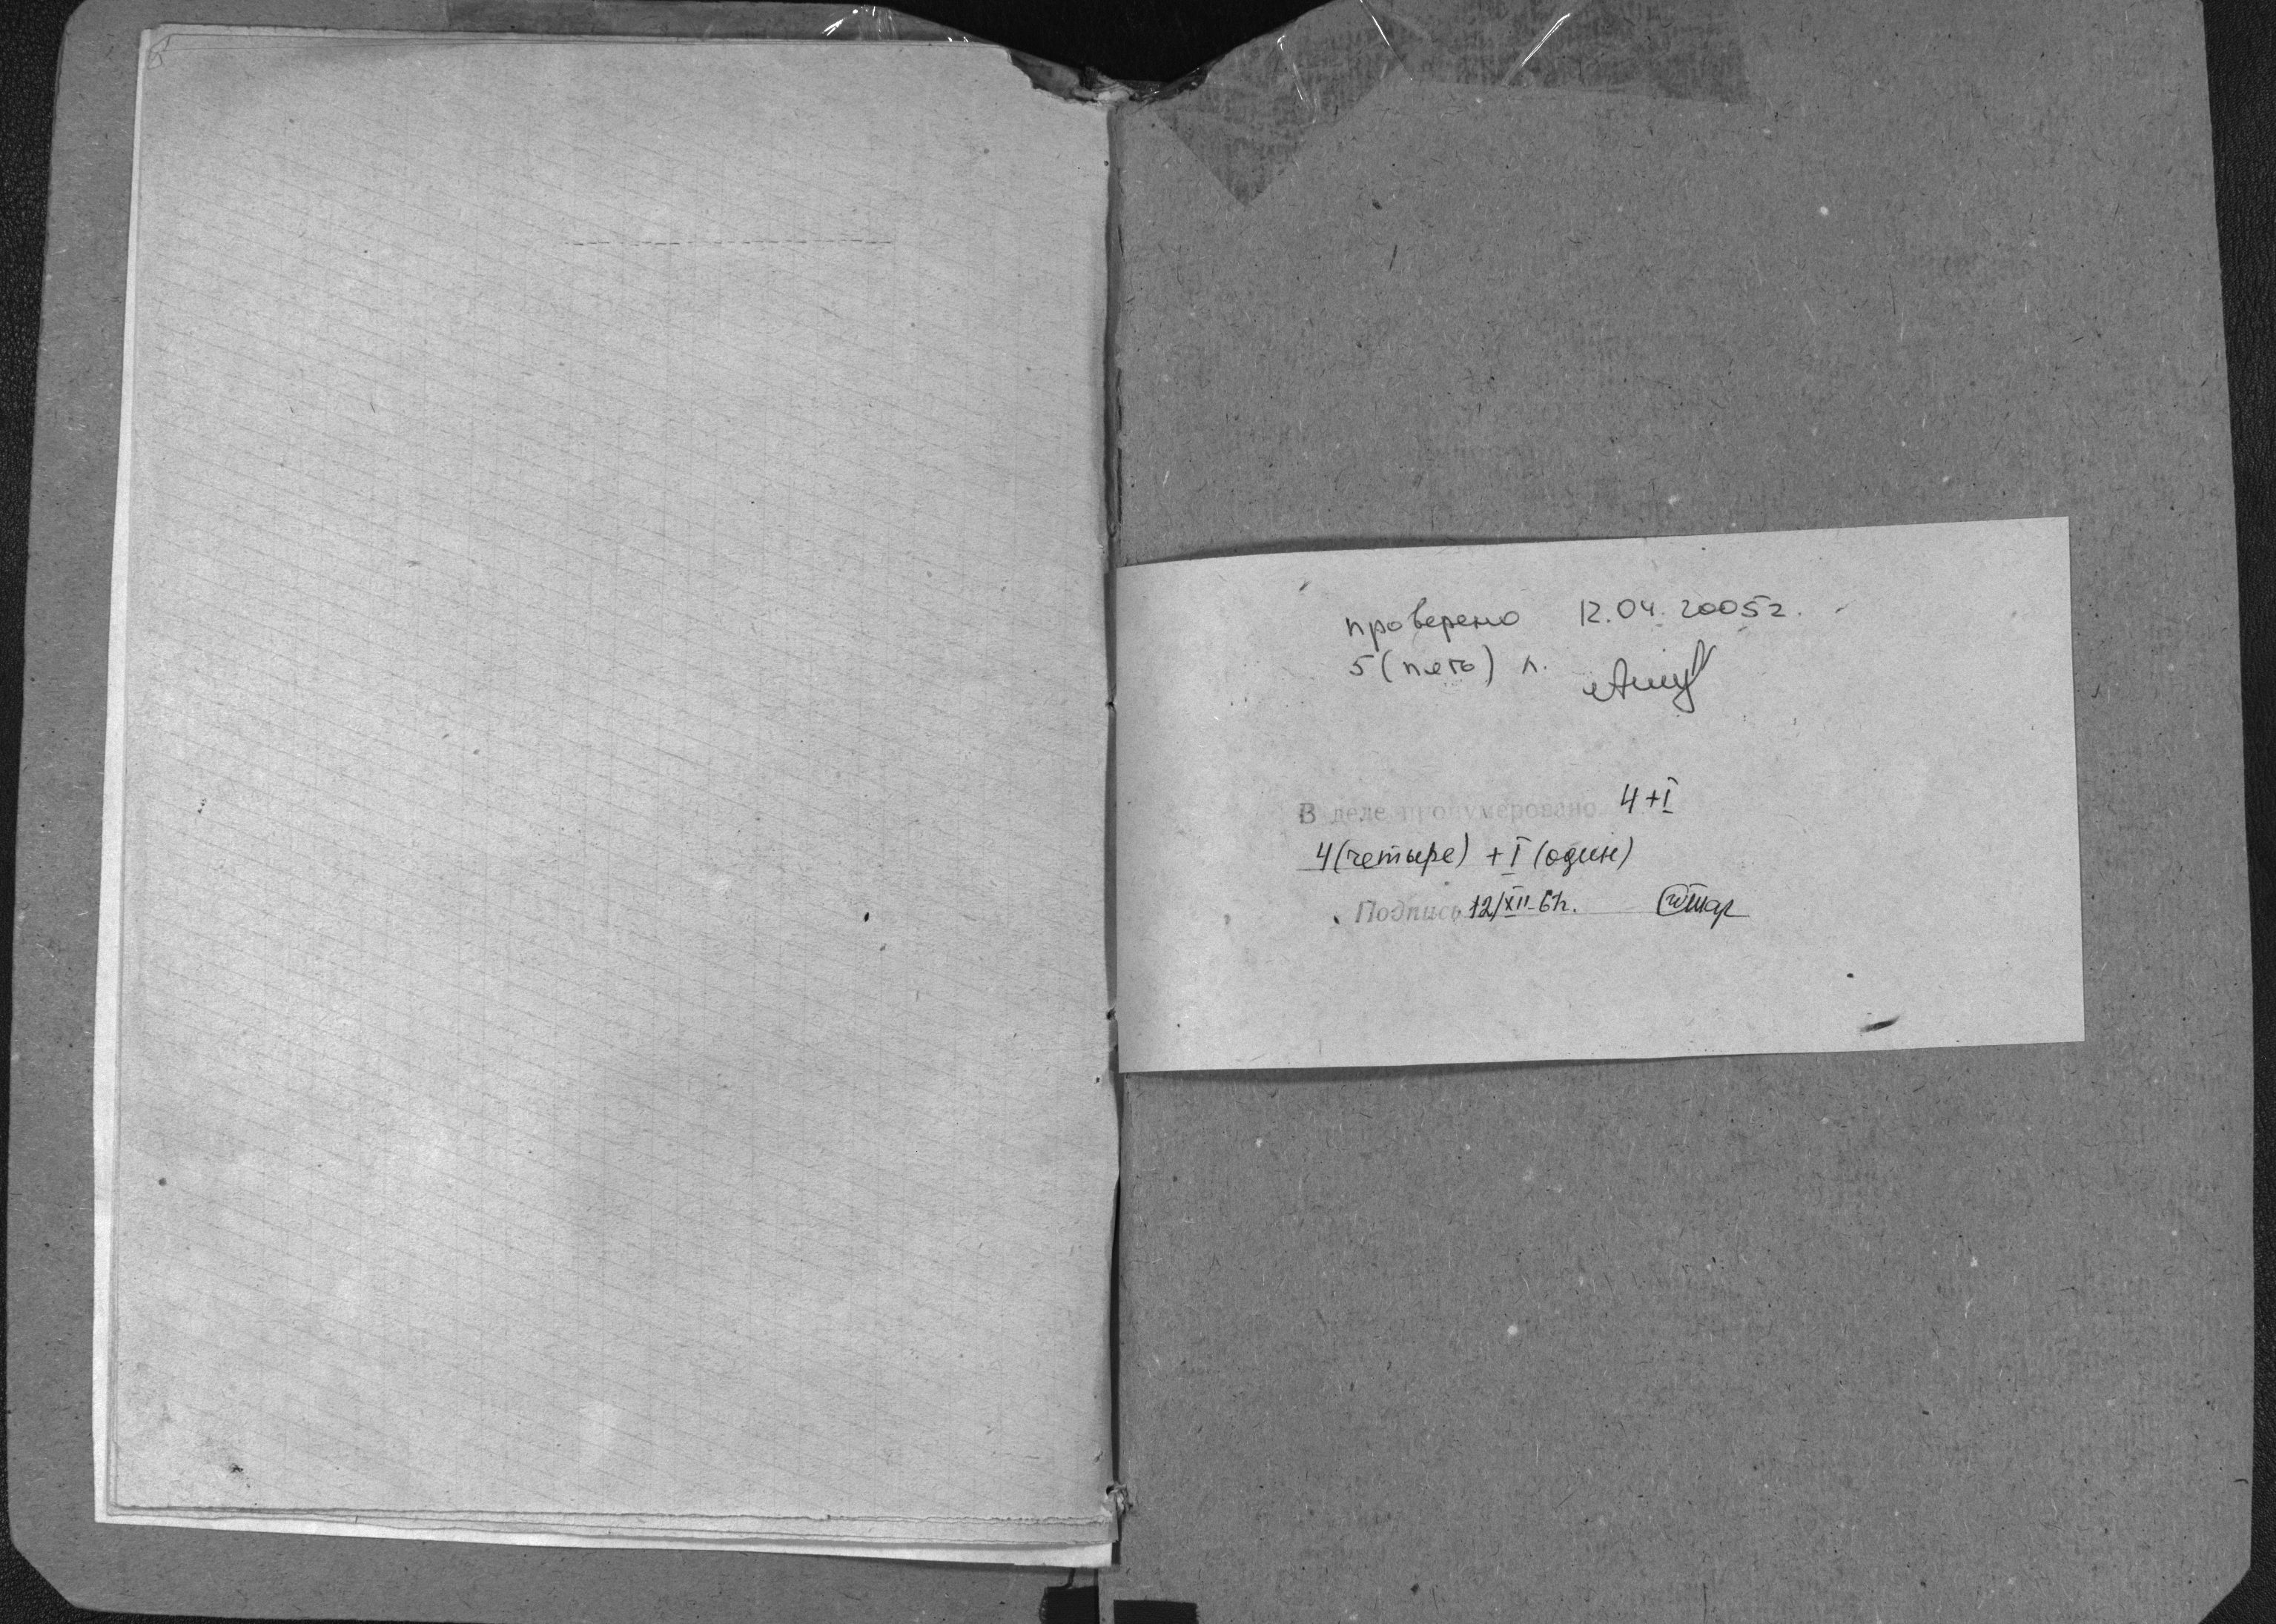 проверено 12.04.2005г.
5 (пять) л.
В деле пронумеровано 4+I
4 (четыре) + I (один)
Подпись 12/XII-67г.